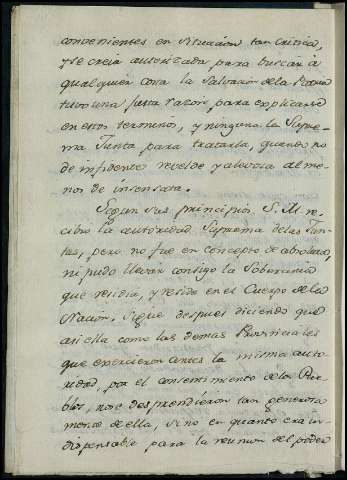 convenientes en situacion tan critica,
y se creia autorizada para buscar à
qualquier costa la salvacion de la Patria
tuvo una justa razon para explicarse
en estos terminos, y ninguna la Supre-
ma Junta para tratarla, quando no
de infidente revelde y alevosa al me-
nos de insensata.
Segun sus principios S. M. re-
cibio la autoridad Suprema de las Jun-
tas, pero no fue en concepto de absoluta,
ni pudo llevar consigo la Soberania
que residia, y reside en el Cuerpo de la
Nacion, sigue despues diciendo que
asi ella como las demas Provinciales
que exercieron antes la misma auto-
ridad, por el consentimiento de los Pue-
blos, no se desprendieron tan generosa
mente de ella, sino en quanto era in-
dispensable para la reunion del poder